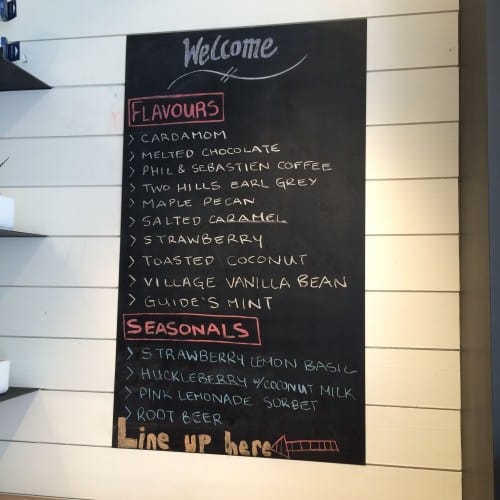 Welcome
FLAVOURS
> CARDAMOM
> MELTED CHOCOLATE
> PHIL & SEBASTIEN COFFEE
> TWO HILLS EARL GREY
> MAPLE PECAN
> SALTED CARAMEL
> STRAWBERRY
> TOASTED COCONUT
> VILLAGE VANILLA BEAN
> GUIDE'S MINT
SEASONALS
> STRAWBERRY LEMON BASIL
> HUCKLEBERRY w/COCONUT MILK
> PINK LEMONADE SORBET
> ROOT BEER
Line up here